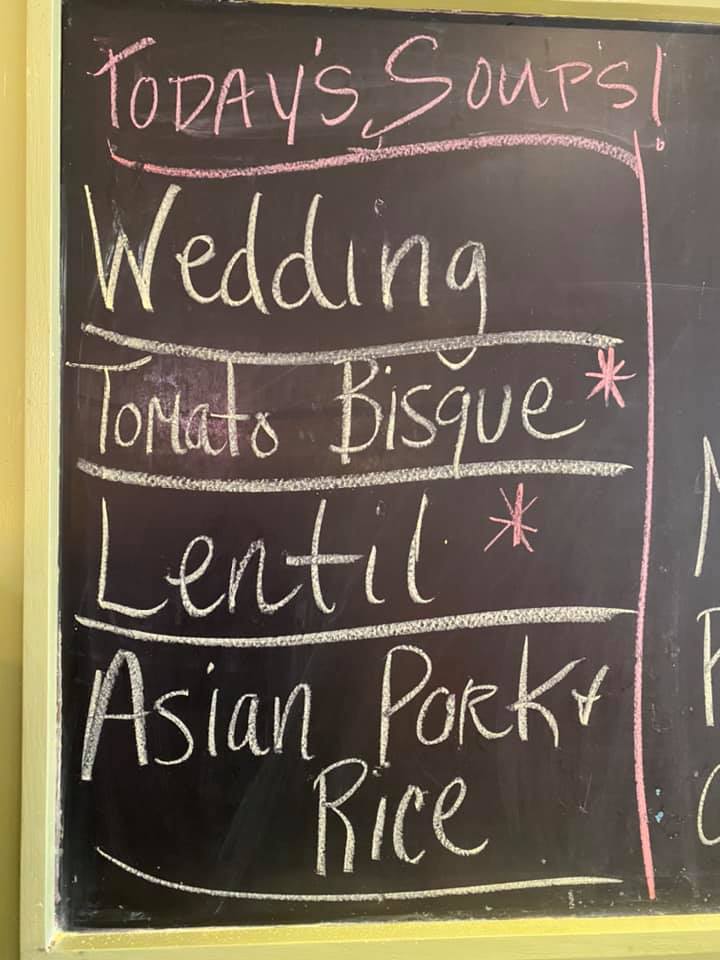 TODAY'S SOUPS!
Wedding
Tomato Bisque *
Lentil *
Asian Pork &
Rice